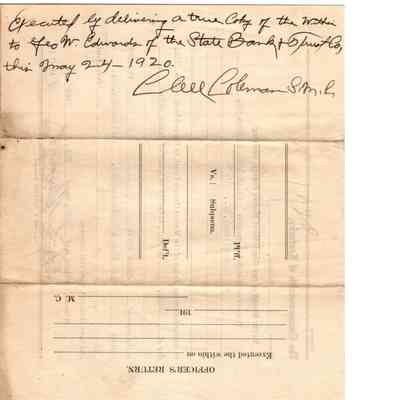 Executed by delivering a true Copy of the within
to Geo W. Edwards of the State Bank & Trust Co,
this May 24 - 1920.
Coleman S.M.C.
Vs.: Subpoena.
Pl'ff.
Def't.
OFFICER'S RETURN.
Executed the within on
191
M. C.